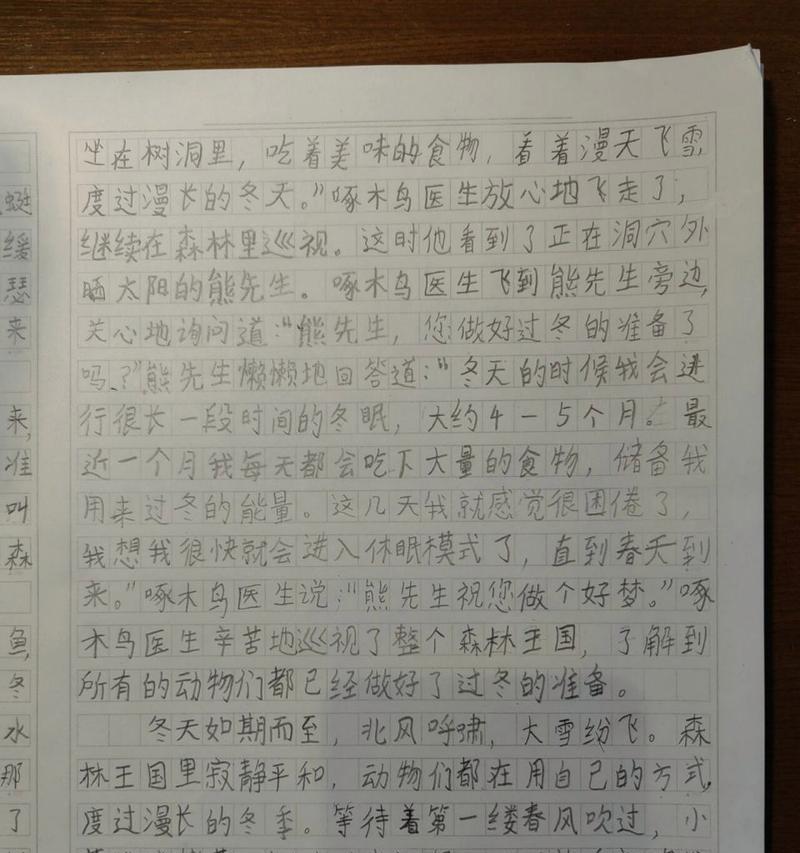 坐在树洞里，吃着美味的食物，看着漫天飞雪，
度过漫长的冬天。”啄木鸟医生放心地飞走了，
继续在森林里巡视。这时他看到了正在洞穴外
晒太阳的熊先生。啄木鸟医生飞到熊先生旁边，
关心地询问道：“熊先生，您做好过冬的准备了
吗？”熊先生懒懒地回答道：“冬天的时候我会进
行很长一段时间的冬眠，大约4－5个月。最
近一个月我每天都会吃下大量的食物，储备我
用来过冬的能量。这几天我就感觉很困倦了，
我想我很快就会进入休眠模式了，直到春天到
来。”啄木鸟医生说：“熊先生祝您做个好梦。”啄
木鸟医生辛苦地巡视了整个森林王国，了解到
所有的动物们都已经做好了过冬的准备。
冬天如期而至，北风呼啸，大雪纷飞。森
林王国里寂静平和，动物们都在用自己的方式，
度过漫长的冬季。等待着第一缕春风吹过，小
蜓
缓
瑟
来
来，
准
叫
森
鱼，
冬
水
那
了